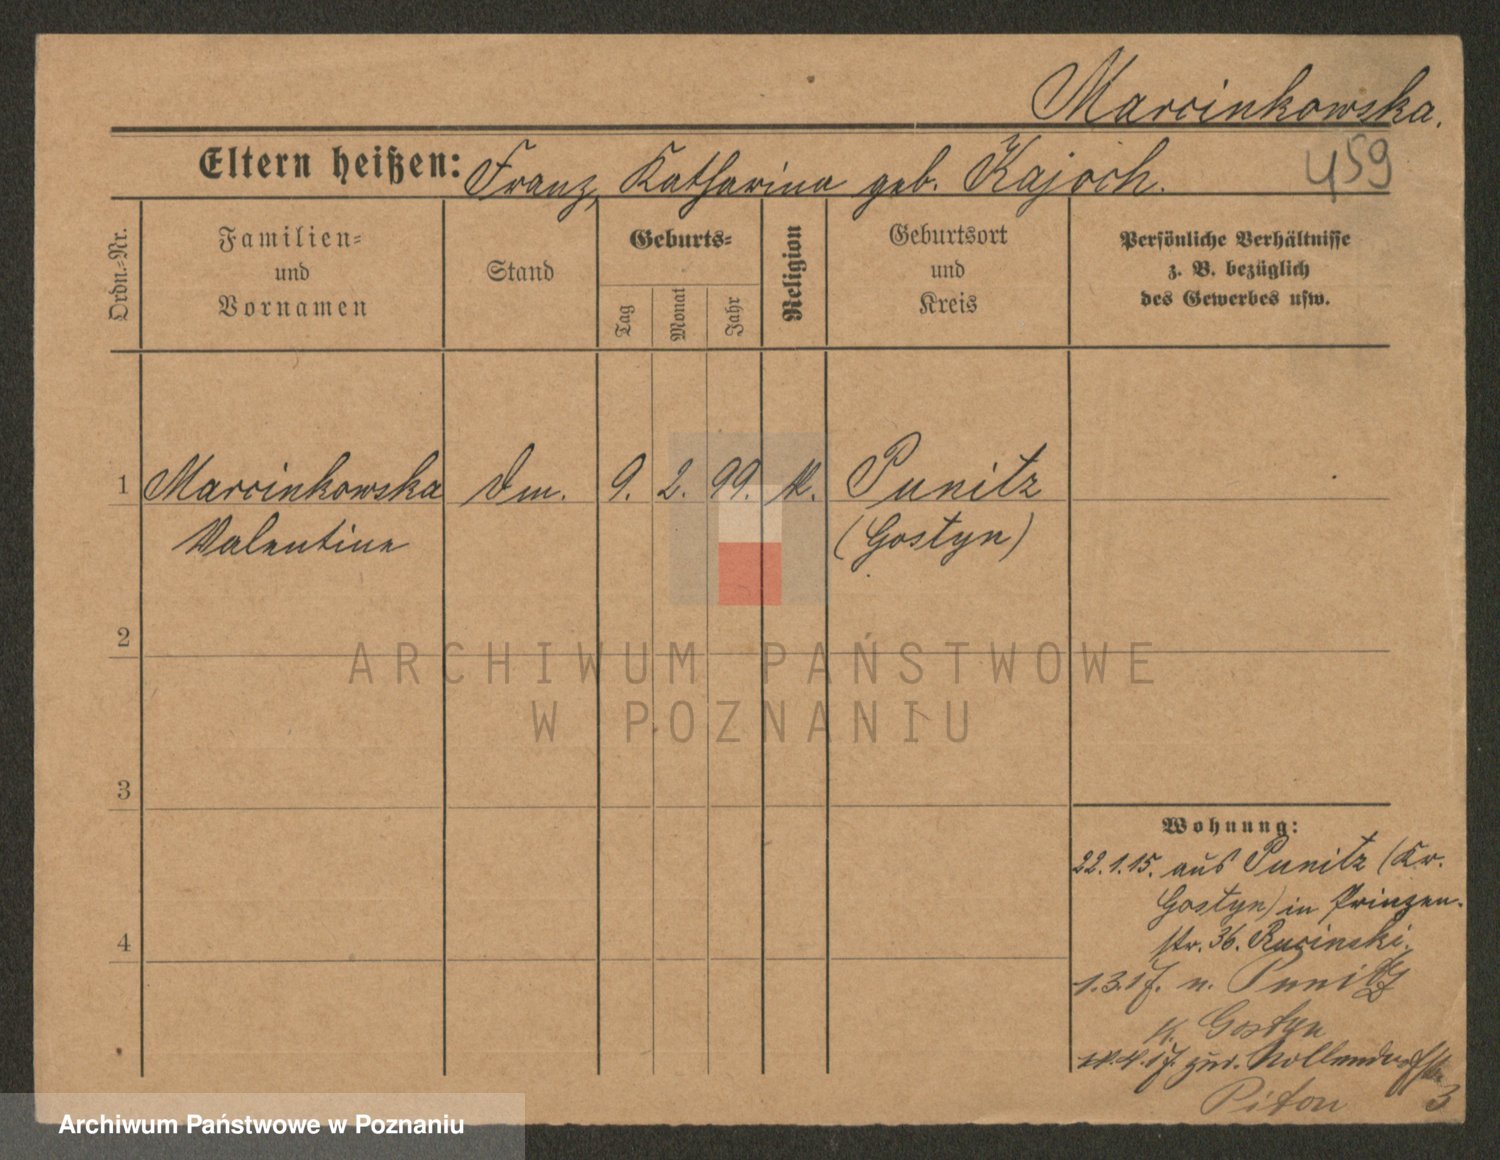 Marcinkowska.
459
Eltern heißen: Franz, Katharina geb. Kajoch.
Ordn.-Nr.
Familien-
und
Vornamen
Stand
Geburts-
Tag
Monat
Jahr
Religion
Geburtsort
und
Kreis
Persönliche Verhältnisse
z. B. bezüglich
des Gewerbes usw.
1 Marcinkowska Dm. 9. 2. 99. k. Punitz
Valentine (Gostyn)
2
3
4
Wohnung:
22.1.15. aus Punitz (Kr.
Gostyn) in Prinzen-
str. 36. Rucinski.
1.3.17. n. Punitz
K. Gostyn
4.17. zur.
Piton 3
ARCHIWUM PAŃSTWOWE
W POZNANIU
Archiwum Państwowe w Poznaniu